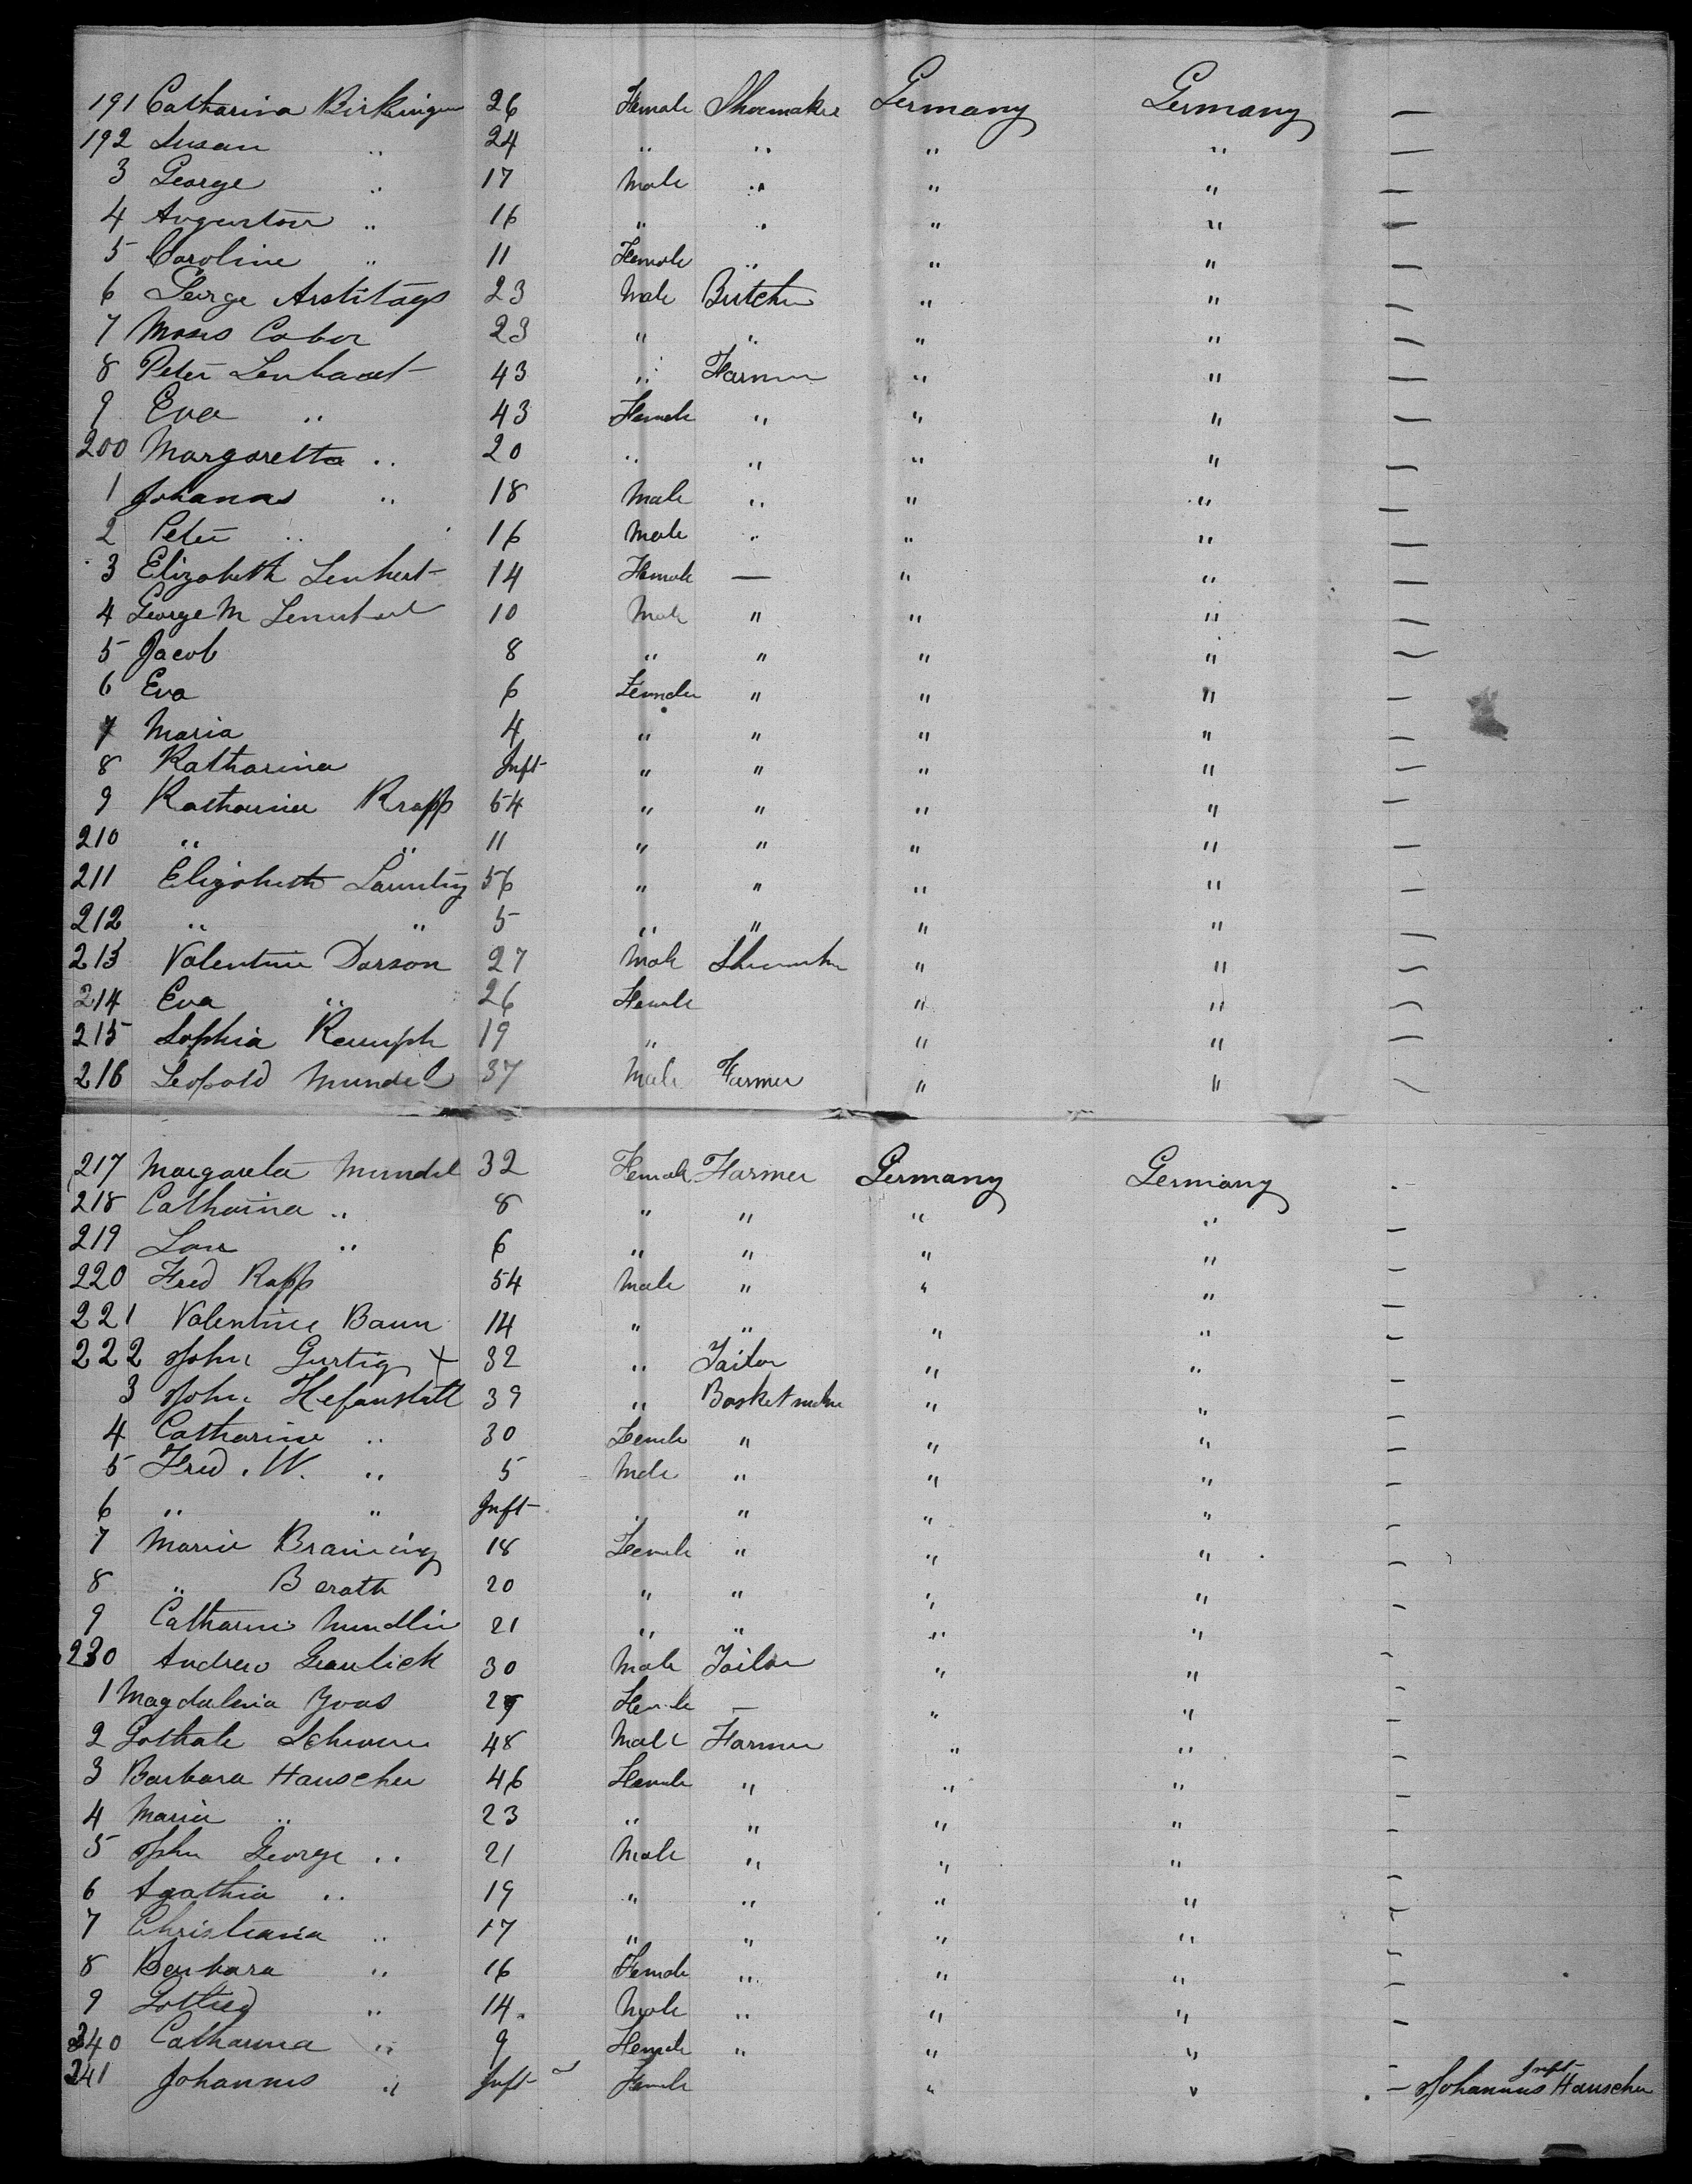 191 Catharina Birkinger 26 Female Shoemaker Germany Germany —
192 Susan " 24 " " " " —
3 George " 17 Male " " " —
4 " 16 " " " " —
5 Caroline " 11 Female " " " —
6 George 23 Male Butcher " " —
7 Moses Cabor 23 " " " " —
8 Peter Lenhart 43 " Farmer " " —
9 Eva " 43 Female " " " —
200 Margaretta " 20 " " " " —
1 Johannes " 18 Male " " " —
2 Peter " 16 Male " " " —
3 Elizabeth Lenhert 14 Female — " " —
4 George M 10 Male " " " —
5 Jacob 8 " " " " —
6 Eva 6 Female " " " —
7 Maria 4 " " " " —
8 Katharina Inft " " " " —
9 Katharina Krapp 54 " " " " —
210 " " 11 " " " " —
211 Elizabeth 56 " " " " —
212 " " 5 " " " " —
213 Valentine Darson 27 Male Shoemaker " " —
214 Eva " 26 Female " " —
215 Sophia Rumph 19 " " " —
216 Leopold Mundel 37 Male Farmer " " —
217 Margareta Mundel 32 Female Farmer Germany Germany —
218 Catharina " 8 " " " " —
219 " 6 " " " " —
220 Fred Rapp 54 Male " " " —
221 Valentine Baun 14 " " " " —
222 John Gurtig + 32 " Tailor " " —
3 John Hefanstatt 39 " Basket maker " " —
4 Catharine " 30 Female " " " —
5 Fred. W. " 5 Male " " " —
6 " " Inft " " " " —
7 Marie 18 Female " " " —
8 " Berath 20 " " " " —
9 Catharine 21 " " " " —
230 Andrew 30 Male Tailor " " —
1 Magdalena 29 Female — " " —
2 48 Male Farmer " " —
3 Barbara Hauscher 46 Female " " " —
4 Maria " 23 " " " " —
5 John George " 21 Male " " " —
6 Agathia " 19 " " " " —
7 Christiana " 17 " " " " —
8 Barbara " 16 Female " " " —
9 Gottlied " 14 Male " " " —
240 Catharina " 9 Female " " " —
241 Johannes " Inft Female " " — Johannus Inft Hauscher